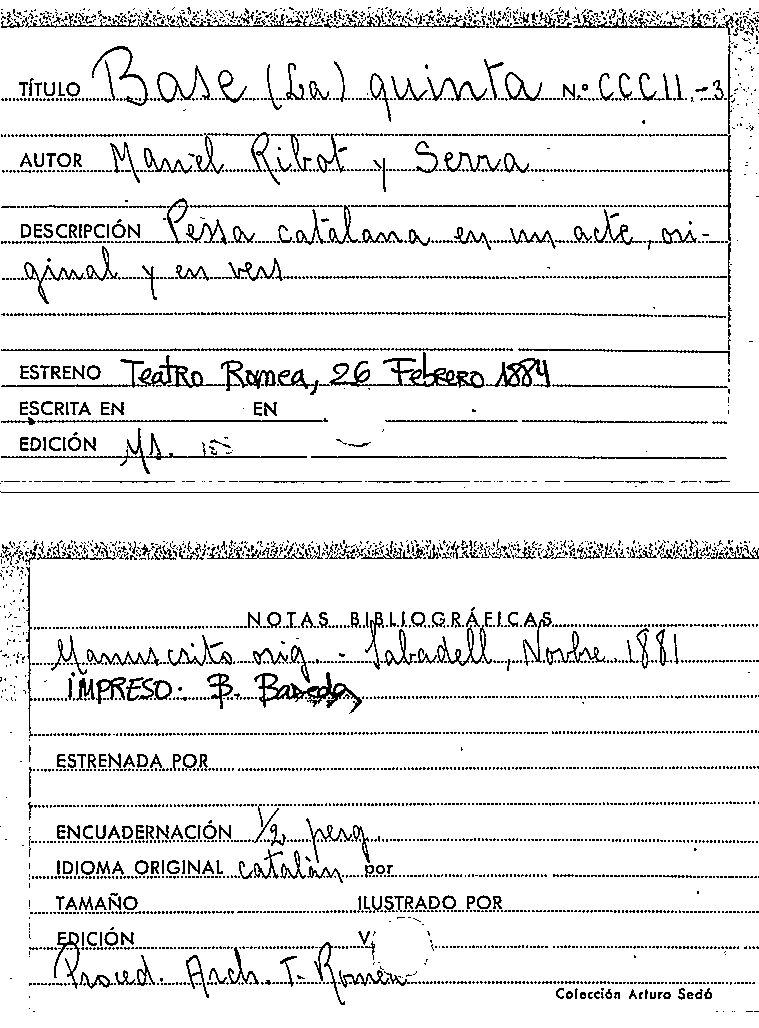 TÍTULO Base (La) quinta N.º CCCII.-3
AUTOR Manel Ribot y Serra
DESCRIPCIÓN Pessa catalana en un acte, ori-
ginal y en vers
ESTRENO Teatro Romea, 26 Febrero 1884
ESCRITA EN EN
EDICIÓN Ms.
NOTAS BIBLIOGRÁFICAS
Manuscrito orig. - Sabadell, Novbre. 1881
IMPRESO. B. Baseda
ESTRENADA POR
ENCUADERNACIÓN 1/2 perg.
IDIOMA ORIGINAL catalán por
TAMAÑO ILUSTRADO POR
EDICIÓN V.
Proced. Arch. T. Romea
Colección Arturo Sedó